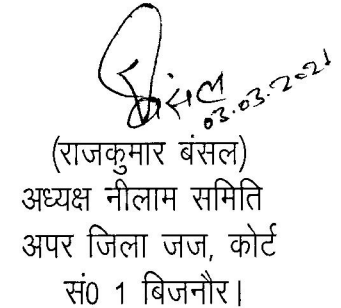 बंसल
03.03.2021
(राजकुमार बंसल)
अध्यक्ष नीलाम समिति
अपर जिला जज, कोर्ट
सं0 1 बिजनौर।